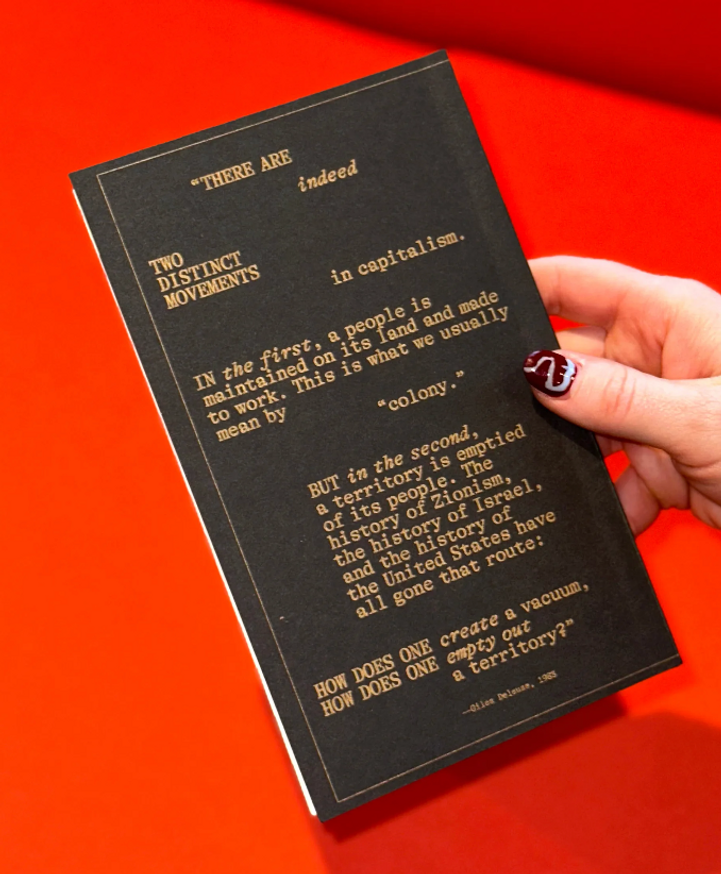 “THERE ARE
indeed
TWO
DISTINCT
MOVEMENTS
in capitalism.
IN the first, a people is
maintained on its land and made
to work. This is what we usually
mean by
“colony.”
BUT in the second,
a territory is emptied
of its people. The
history of Zionism,
the history of Israel,
and the history of
the United States have
all gone that route:
HOW DOES ONE create a vacuum,
HOW DOES ONE empty out
a territory?”
—Gilles Deleuze, 1985